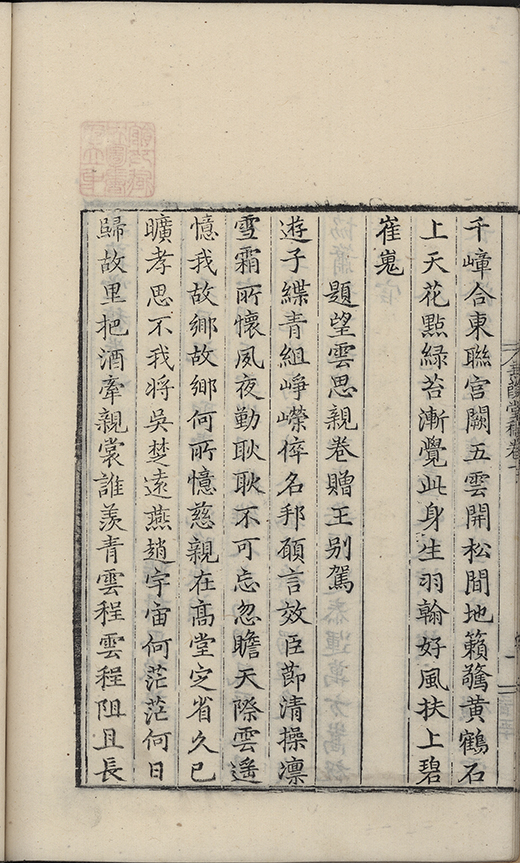 千嶂合東聯宮闕五雲開松間地籟驚黃鶴石
上天花點綠苔漸覺此身生羽翰好風扶上碧
崔嵬
題望雲思親卷贈王别駕
遊子緤青組崢嶸倅名邦願言效臣節清操凛
雪霜所懷夙夜勤耿耿不可忘忽瞻天際雲遙
憶我故鄉故鄉何所憶慈親在高堂定省久已
曠孝思不我將吳楚遠燕趙宇宙何茫茫何日
歸故里把酒牽親裳誰羨青雲程雲程阻且長